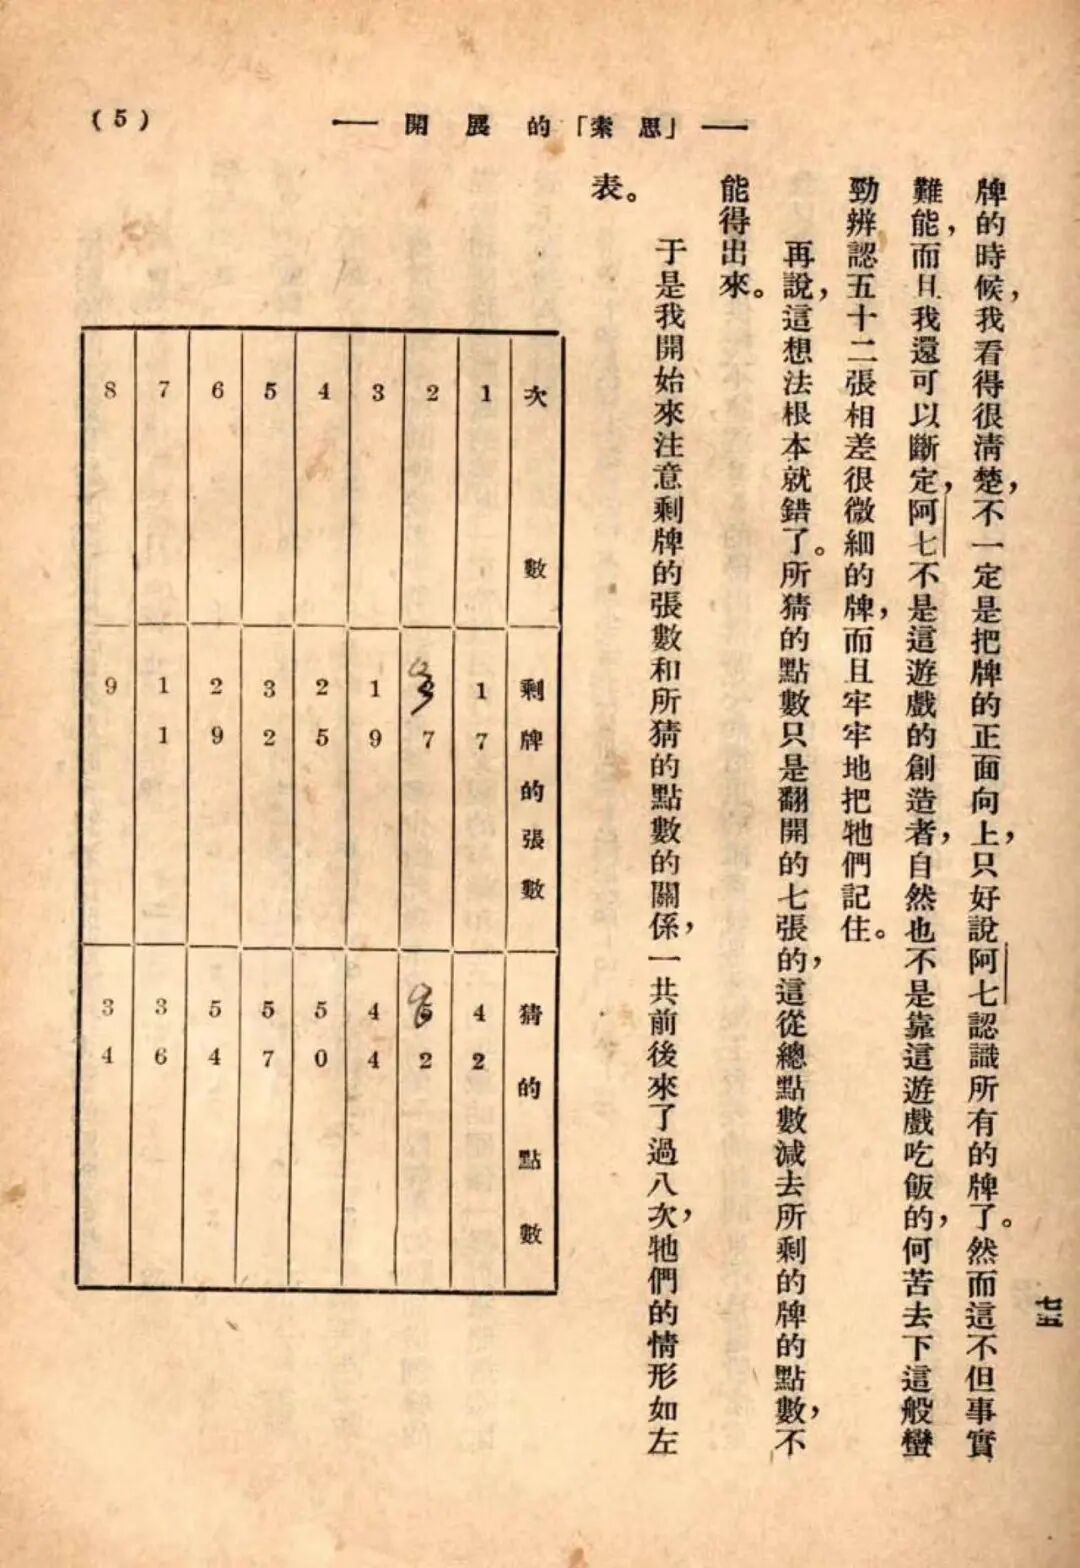 「思索」的展開
(5)
七五
牌的時候,我看得很清楚,不一定是把牌的正面向上,只好說阿七認識所有的牌了。然而這不但事實
難能,而且我還可以斷定,阿七不是這遊戲的創造者,自然也不是靠這遊戲吃飯的,何苦去下這般蠻
勁辨認五十二張相差很微細的牌,而且牢牢地把牠們記住。
再說,這想法根本就錯了。所猜的點數只是翻開的七張的,這從總點數減去所剩的牌的點數,不
能得出來。
于是我開始來注意剩牌的張數和所猜的點數的關係,一共前後來了過八次,牠們的情形如左
表。
次數 剩牌的張數 猜的點數
1 17 42
2 7 2
3 19 44
4 25 50
5 32 57
6 29 54
7 11 36
8 9 34